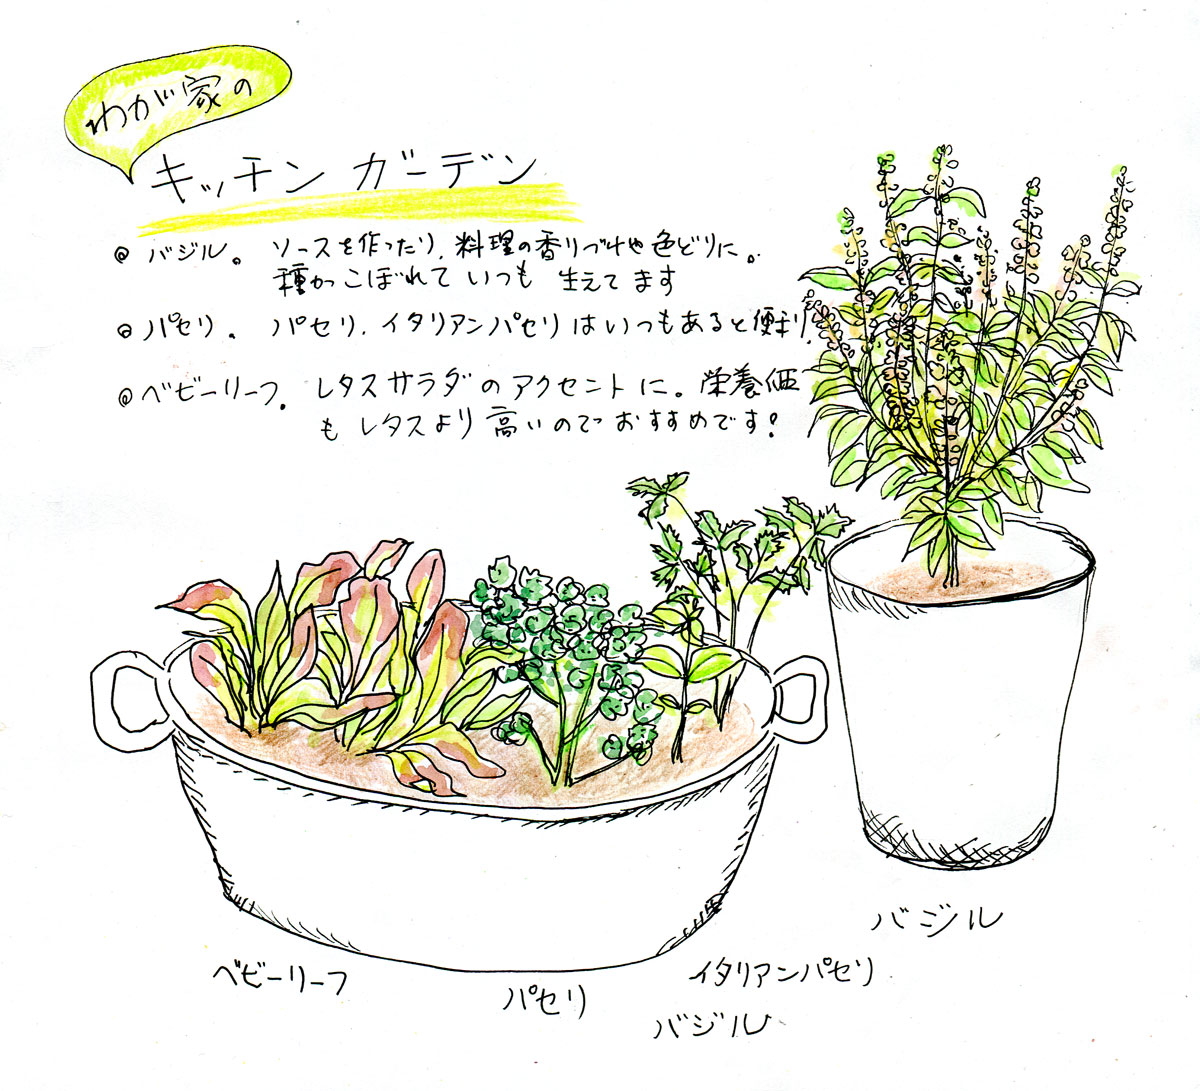 わが家の
キッチンガーデン
◎バジル。 ソースを作ったり、料理の香りづけや色どりに。
種がこぼれていつも生えてます
◎パセリ。 パセリ、イタリアンパセリはいつもあると便利。
◎ベビーリーフ。 レタスサラダのアクセントに。栄養価
もレタスより高いのでおすすめです!
バジル
ベビーリーフ
パセリ
イタリアンパセリ
バジル